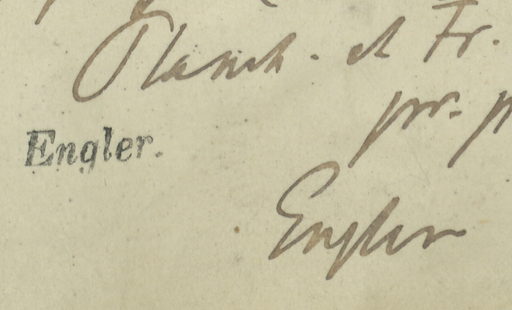 Planch. et Tr.
pr. p
Engler.
Engler